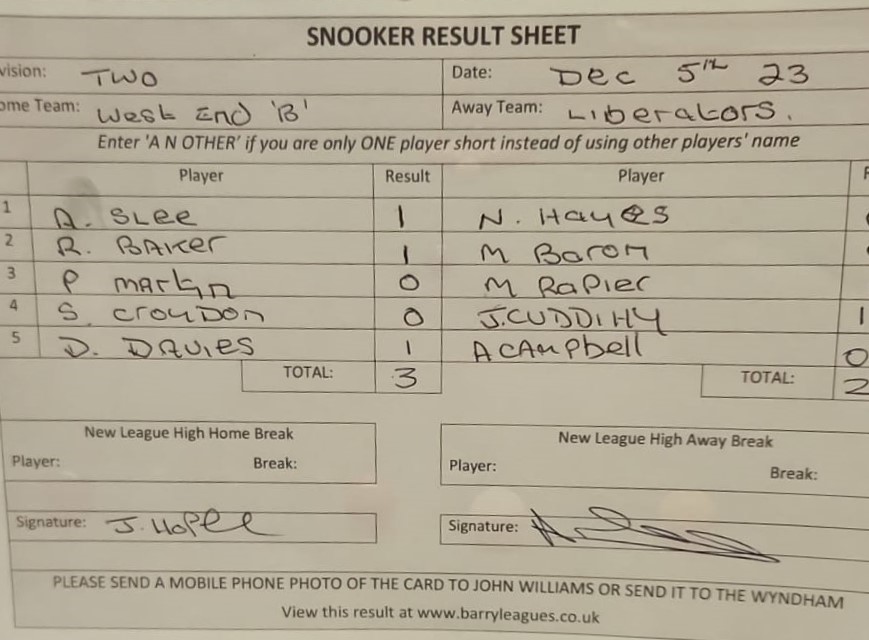 SNOOKER RESULT SHEET
vision: TWO Date: Dec 5th 23
ome Team: West End 'B' Away Team: Liberators.
Enter 'A N OTHER' if you are only ONE player short instead of using other players' name
Player Result Player
1 A. SLee 1 N. Hayes
2 R. BAKer 1 M Baron
3 P martin 0 M RaPier
4 S. CroyDon 0 J.CUDDIHY 1
5 D. DAVIES 1 A CAmpbell 0
TOTAL: 3 TOTAL: 2
New League High Home Break New League High Away Break
Player: Break: Player: Break:
Signature: Signature:
PLEASE SEND A MOBILE PHONE PHOTO OF THE CARD TO JOHN WILLIAMS OR SEND IT TO THE WYNDHAM
View this result at www.barryleagues.co.uk